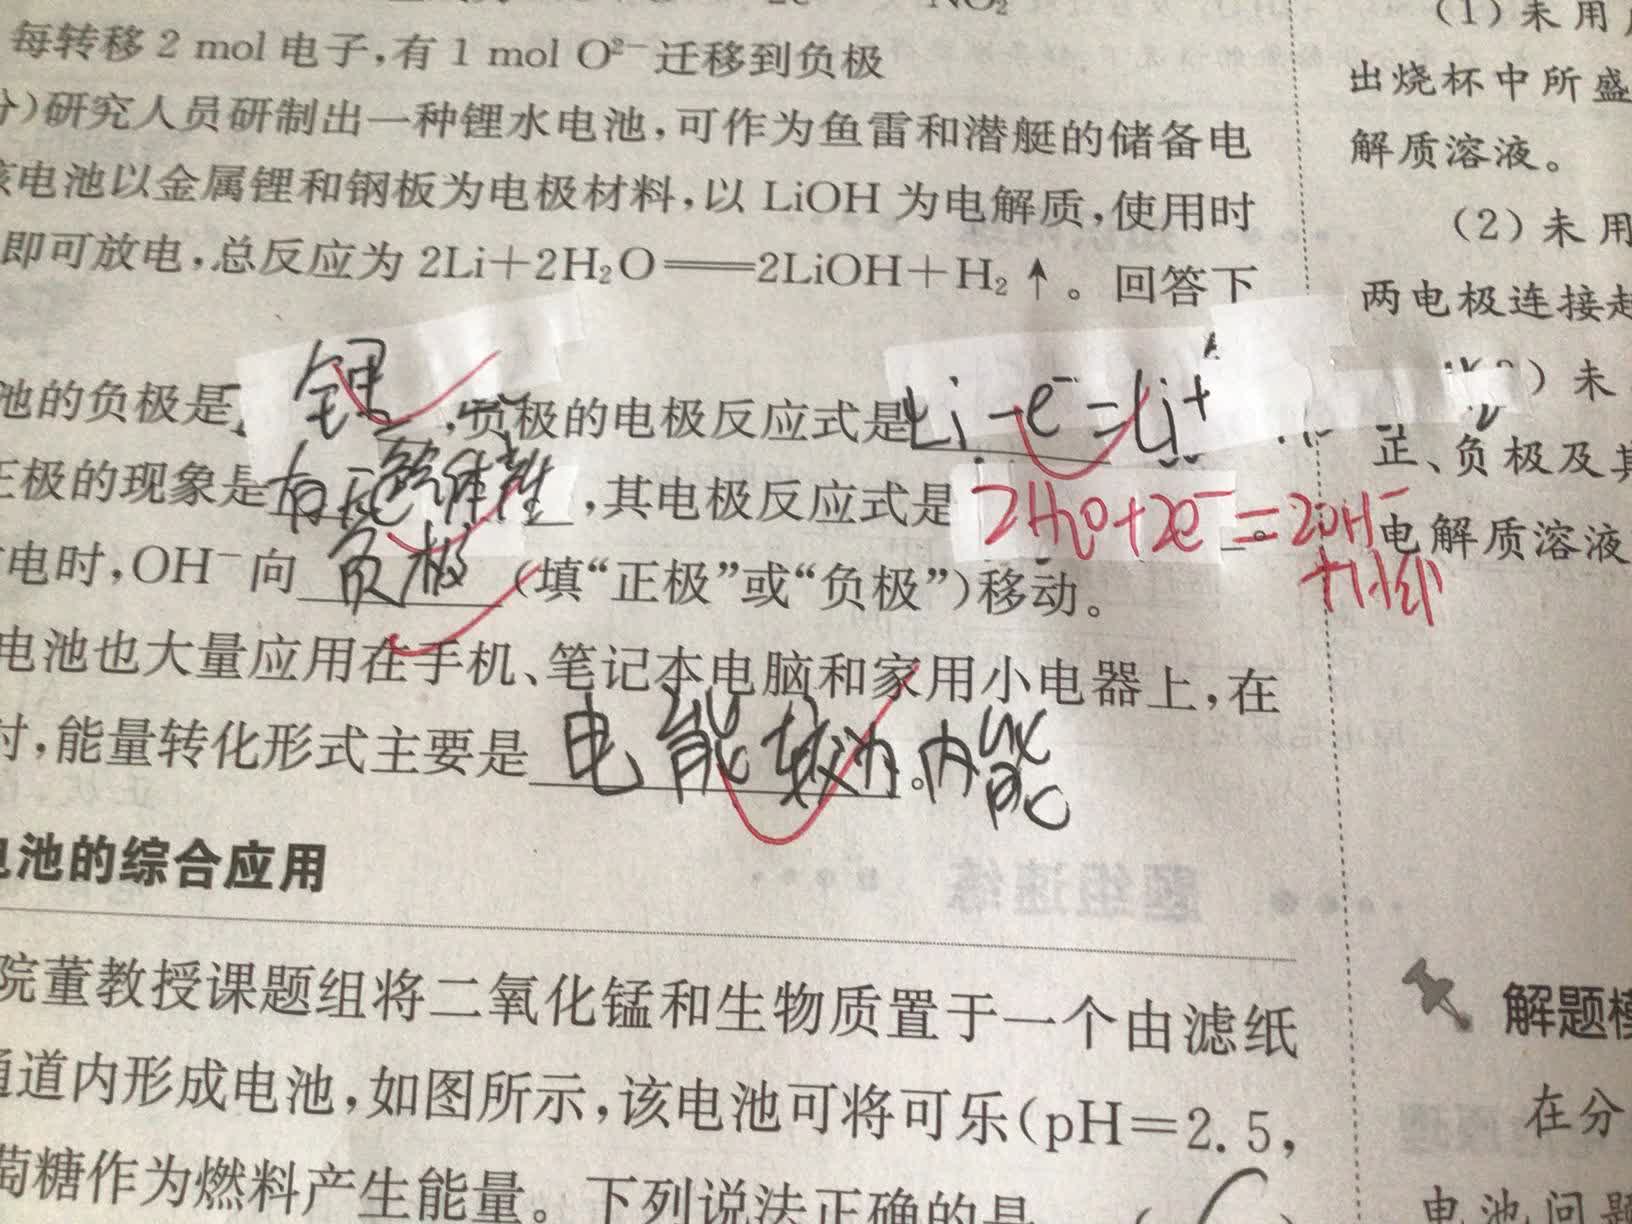 每转移 2 mol 电子,有 1 mol O²⁻ 迁移到负极
分)研究人员研制出一种锂水电池,可作为鱼雷和潜艇的储备电
该电池以金属锂和钢板为电极材料,以 LiOH 为电解质,使用时
即可放电,总反应为 2Li+2H₂O══2LiOH+H₂↑。回答下
池的负极是 锂 ,负极的电极反应式是 Li-e⁻=Li⁺
正极的现象是 有无 ,其电极反应式是 2H₂O+2e⁻=2OH⁻
+H₂↑
电时,OH⁻向 负极 (填“正极”或“负极”)移动。
电池也大量应用在手机、笔记本电脑和家用小电器上,在
时,能量转化形式主要是 电能 为。内能
电池的综合应用
院董教授课题组将二氧化锰和生物质置于一个由滤纸
通道内形成电池,如图所示,该电池可将可乐(pH=2.5,
萄糖作为燃料产生能量。下列说法正确的是 (
(1)未用
出烧杯中所盛
解质溶液。
(2)未用
两电极连接起
)未
正、负极及其
电解质溶液
题组速练
解题模
在分
电池问题